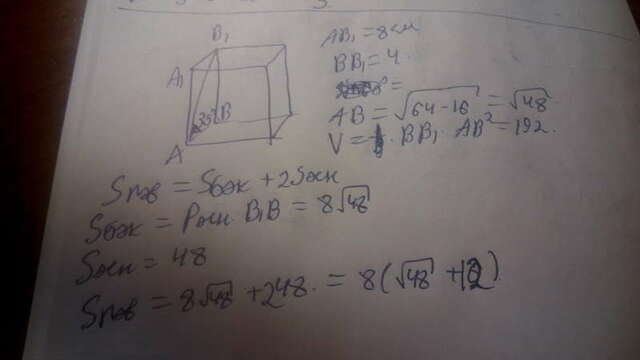 B₁
A₁
30°
B
A
AB₁ = 8 см
BB₁ = 4
AB = √64-16 = √48
V = BB₁ · AB² = 192.
Sпов = Sбок + 2Sосн
Sбок = Pосн · B₁B = 8√48
Sосн = 48
Sпов = 8√48 + 2·48 = 8(√48 + 12)